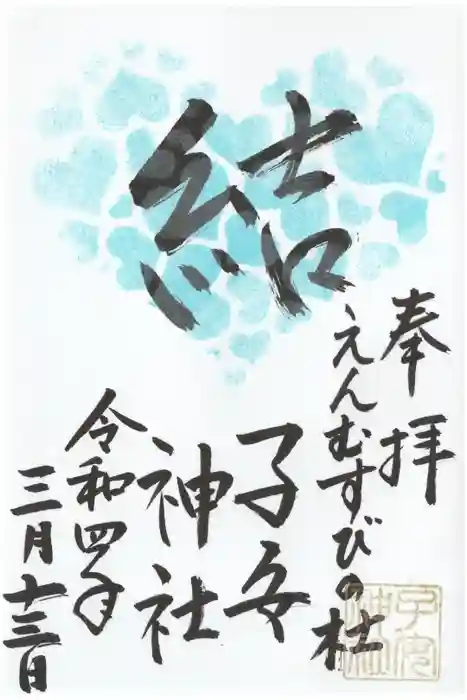 結
奉拝
えんむすびの杜
子安
神社
令和四年
三月十三日
子安
神社